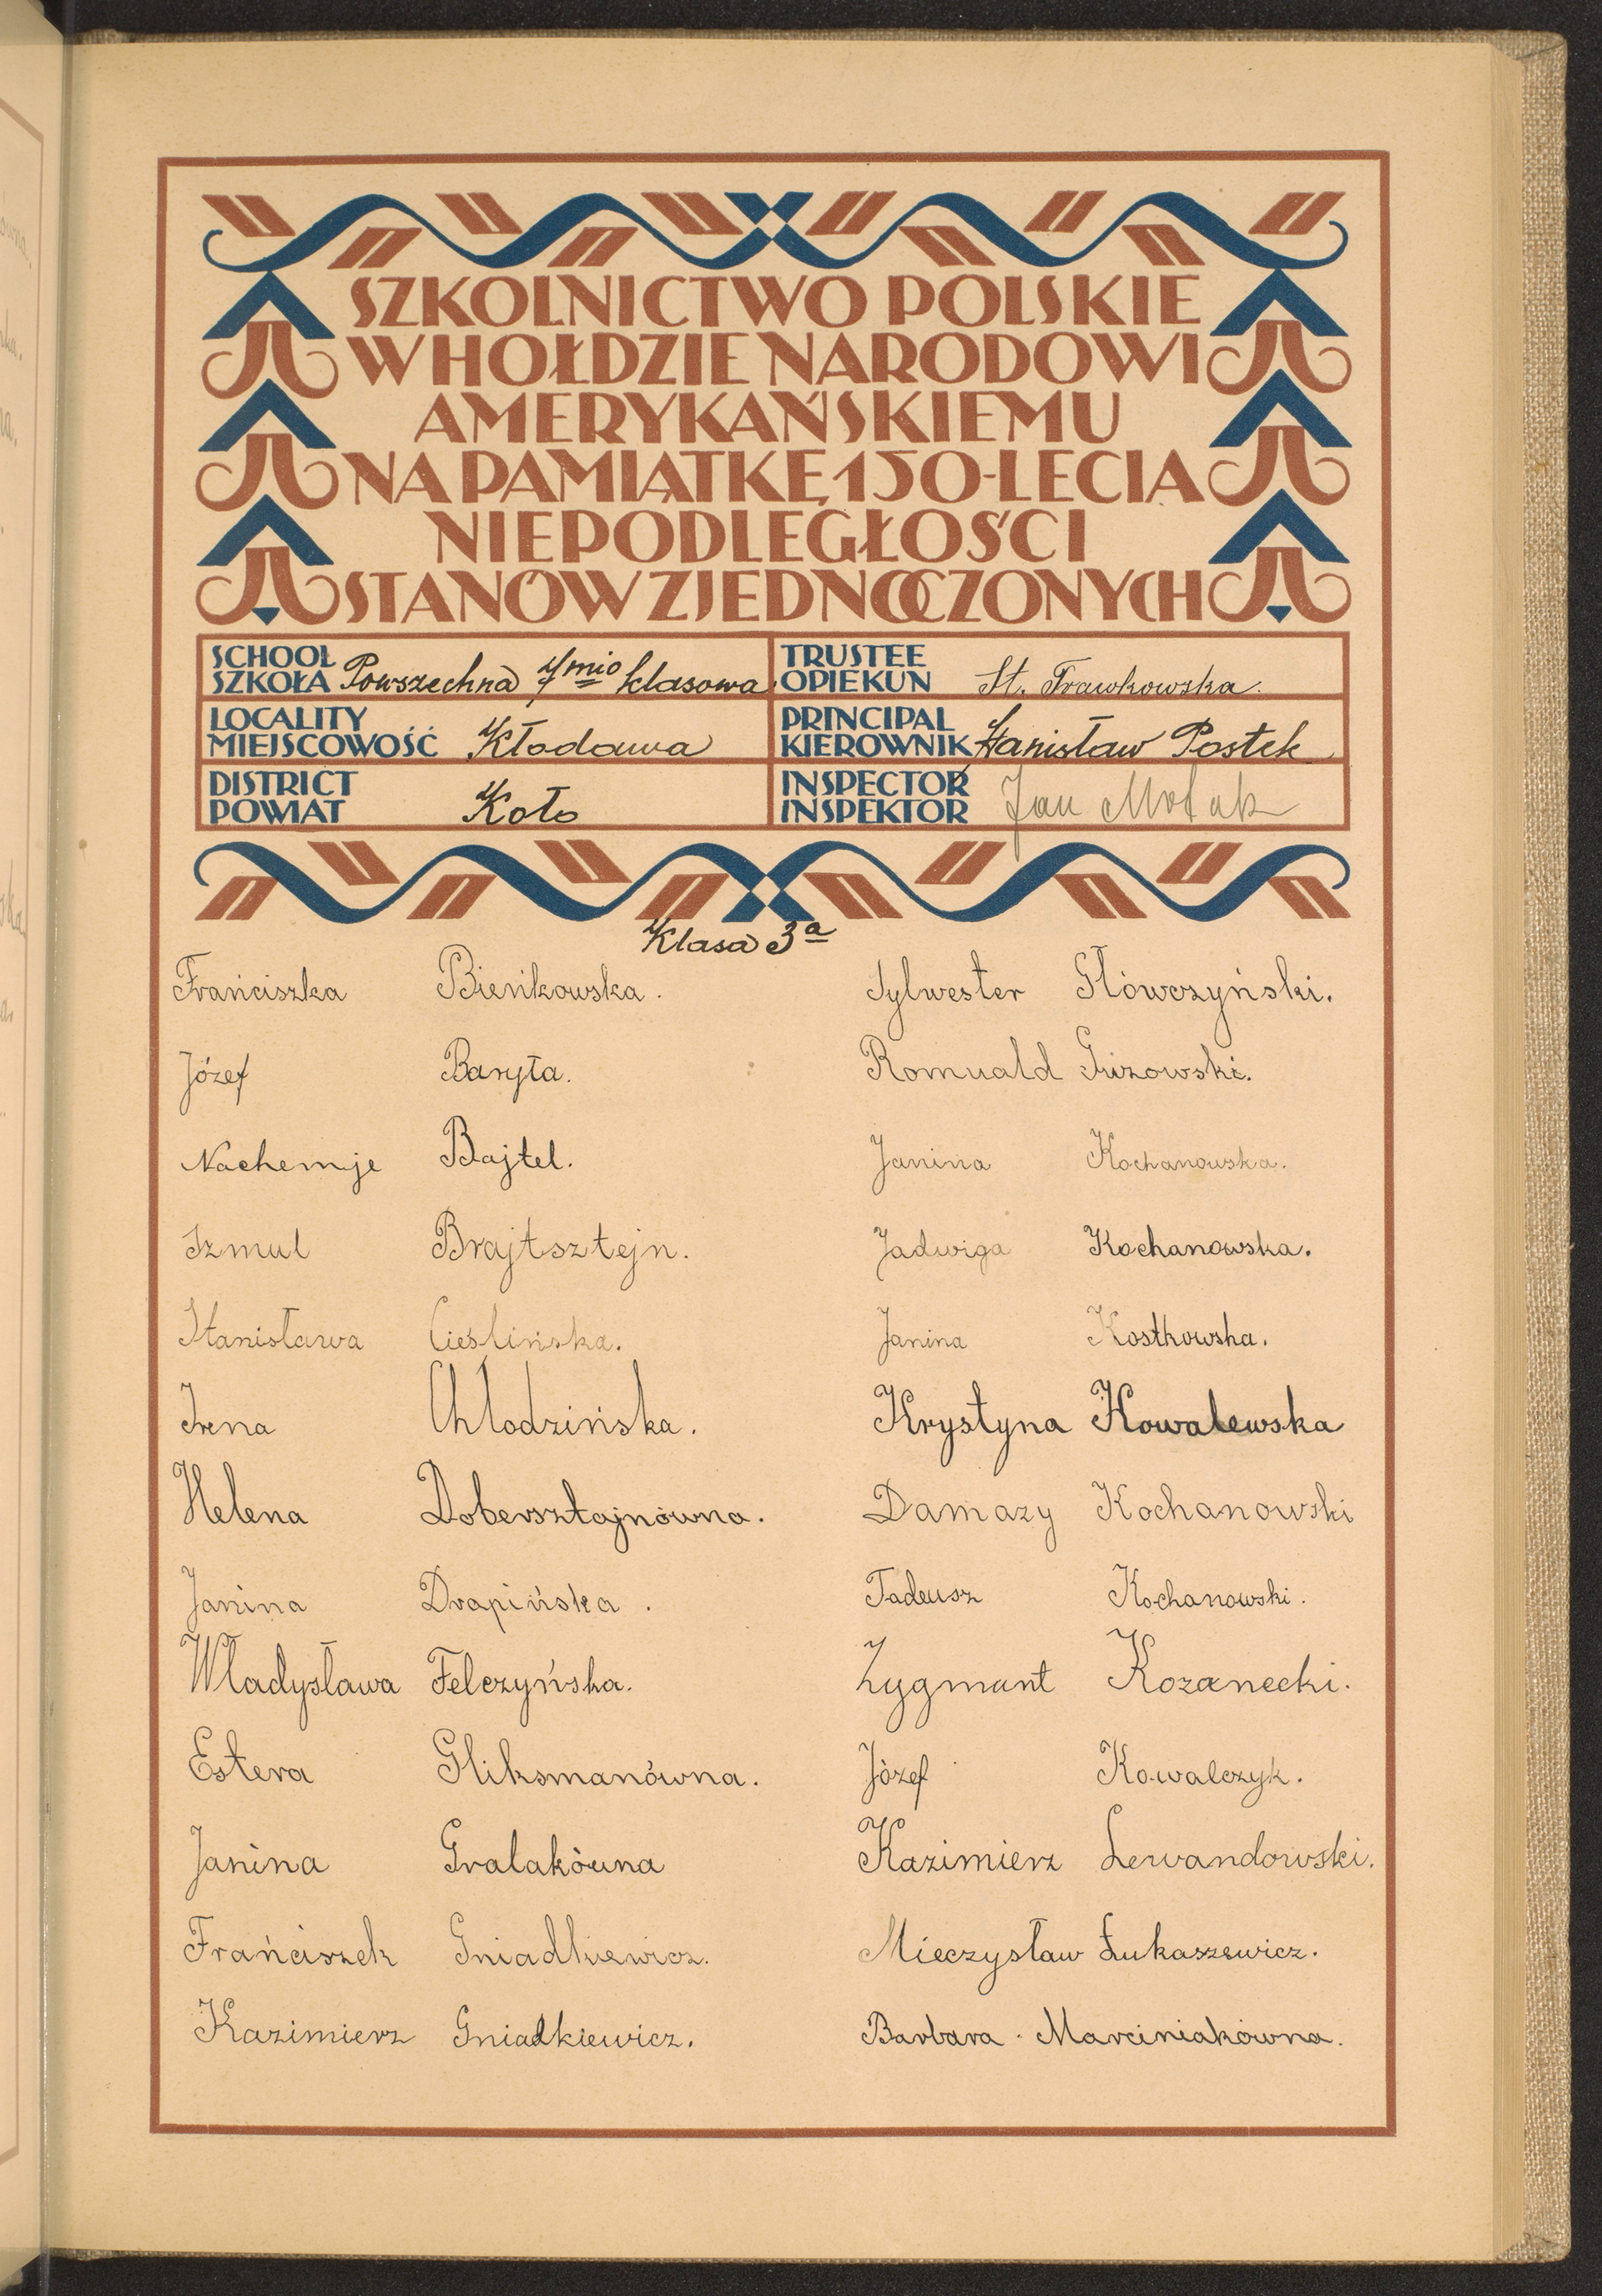 SZKOLNICTWO POLSKIE
W HOŁDZIE NARODOWI
AMERYKAŃSKIEMU
NA PAMIĄTKĘ 150-LECIA
NIEPODLEGŁOŚCI
STANÓW ZJEDNOCZONYCH
SCHOOL
SZKOŁA Powszechna 7mio klasowa
TRUSTEE
OPIEKUN St. Trawkowska.
LOCALITY
MIEJSCOWOŚĆ Kłodawa
PRINCIPAL
KIEROWNIK Stanisław Postek
DISTRICT
POWIAT Koło
INSPECTOR
INSPEKTOR Jan
Klasa 3a
Frańciszka Bieńkowska.
Józef Baryła.
Nachemje Bajtel.
Szmul Brajtsztejn.
Stanisława Cieślińska.
Irena Chłodzińska.
Helena Dobersztajnówna.
Janina Drapińska.
Władysława Felczyńska.
Estera Gliksmanówna.
Janina Gralakówna
Frańciszek Gniadkiewicz.
Kazimierz Gniadkiewicz.
Sylwester Główczyński.
Romuald Guzowski.
Janina Kochanowska.
Jadwiga Kochanowska.
Janina Kostkowska.
Krystyna Kowalewska
Damazy Kochanowski
Tadeusz Kochanowski.
Zygmunt Kozanecki.
Józef Kowalczyk.
Kazimierz Lewandowski.
Mieczysław Łukaszewicz.
Barbara Marciniakówna.